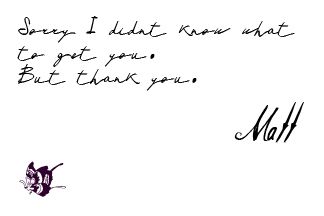 Sorry I didnt know what
to get you.
But thank you.
Matt